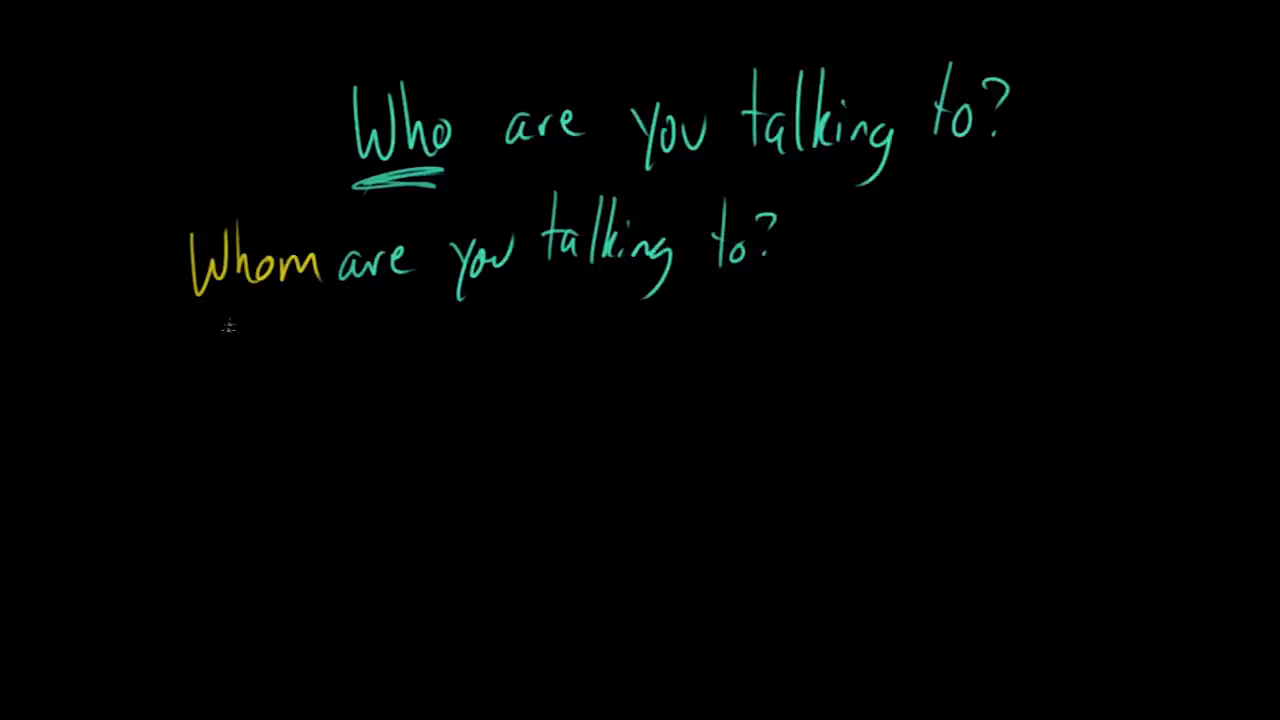 Who are you talking to?
Whom are you talking to?